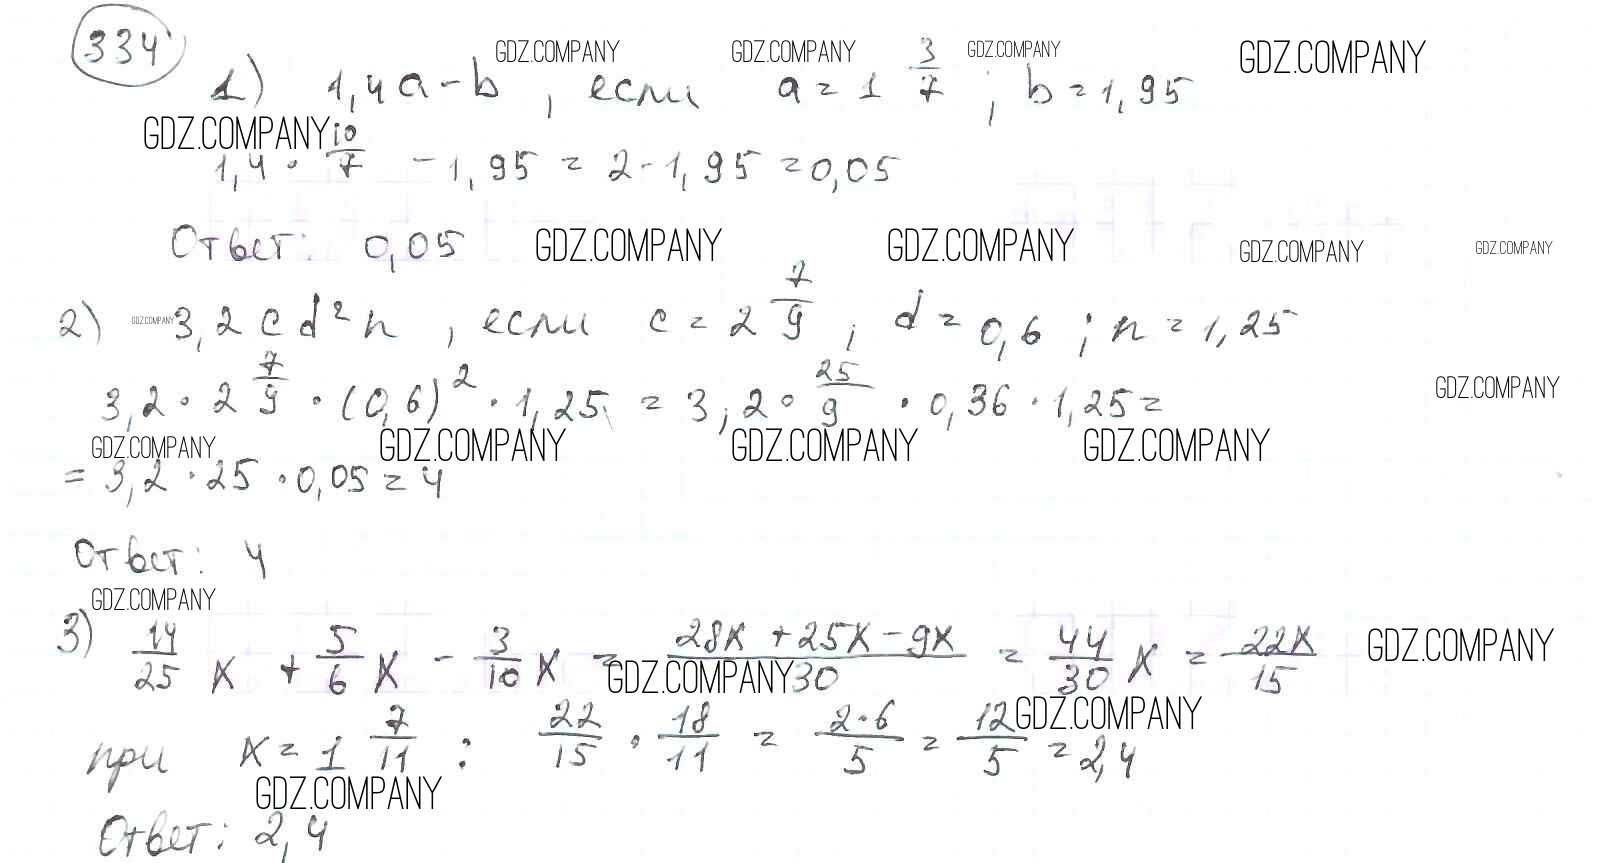 334
GDZ.COMPANY GDZ.COMPANY GDZ.COMPANY GDZ.COMPANY
1) 1,4a - b , если a = 1 3/7 ; b = 1,95
GDZ.COMPANY
1,4 · 10/7 - 1,95 = 2 - 1,95 = 0,05
Ответ: 0,05 GDZ.COMPANY GDZ.COMPANY GDZ.COMPANY GDZ.COMPANY
2) GDZ.COMPANY 3,2cd²n , если c = 2 7/9 ; d = 0,6 ; n = 1,25
3,2 · 2 7/9 · (0,6)² · 1,25 = 3,2 · 25/9 · 0,36 · 1,25 = GDZ.COMPANY
GDZ.COMPANY GDZ.COMPANY GDZ.COMPANY GDZ.COMPANY
= 3,2 · 25 · 0,05 = 4
Ответ: 4
GDZ.COMPANY
3) 14/25 x + 5/6 x - 3/10 x = 28x + 25x - 9x/30 = 44/30 x = 22x/15 GDZ.COMPANY
GDZ.COMPANY GDZ.COMPANY
при x = 1 7/11 : 22/15 · 18/11 = 2·6/5 = 12/5 = 2,4
GDZ.COMPANY
Ответ: 2,4